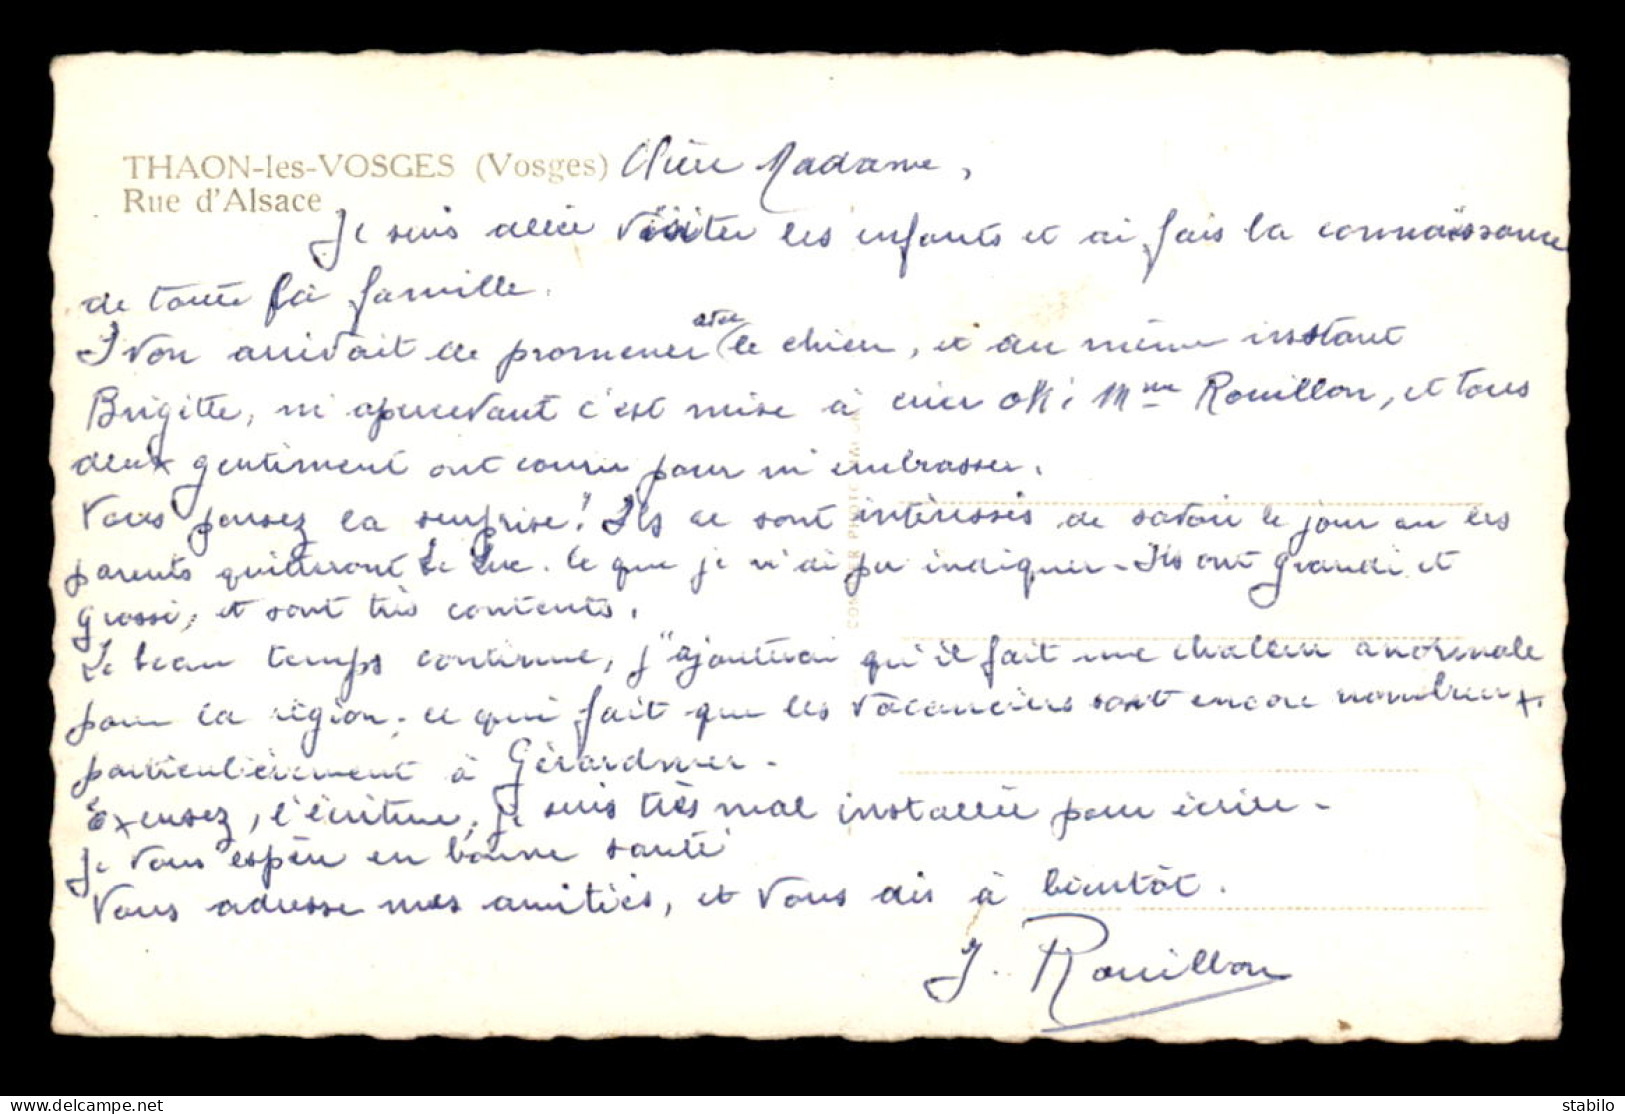 THAON-les-VOSGES (Vosges) Chère Madame,
Rue d'Alsace
Je suis allée visiter les enfants et ai fais la connaissance
de toute la famille.
Yvon arrivait de promener avec le chien, et au même instant
Brigitte, m'apercevant c'est mise à crier oh! Mme Rouillon, et tous
deux gentiment ont couru pour m'embrasser.
Vous pensez la surprise! Ils se sont intéressés de savoir le jour ou les
parents quitteront Le Luc. Ce que je n'ai pu indiquer - Ils ont grandi et
grossi, et sont très contents.
Le beau temps continue, j'ajouterai qu'il fait une chaleur anormale
pour la région, ce qui fait que les vacanciers sont encore nombreux.
particulièrement à Gérardmer -
Excusez, l'écriture, je suis très mal installée pour écrire -
Je vous espère en bonne santé
Vous adresse mes amitiés, et vous dis à bientôt.
J. Rouillon
stabilo